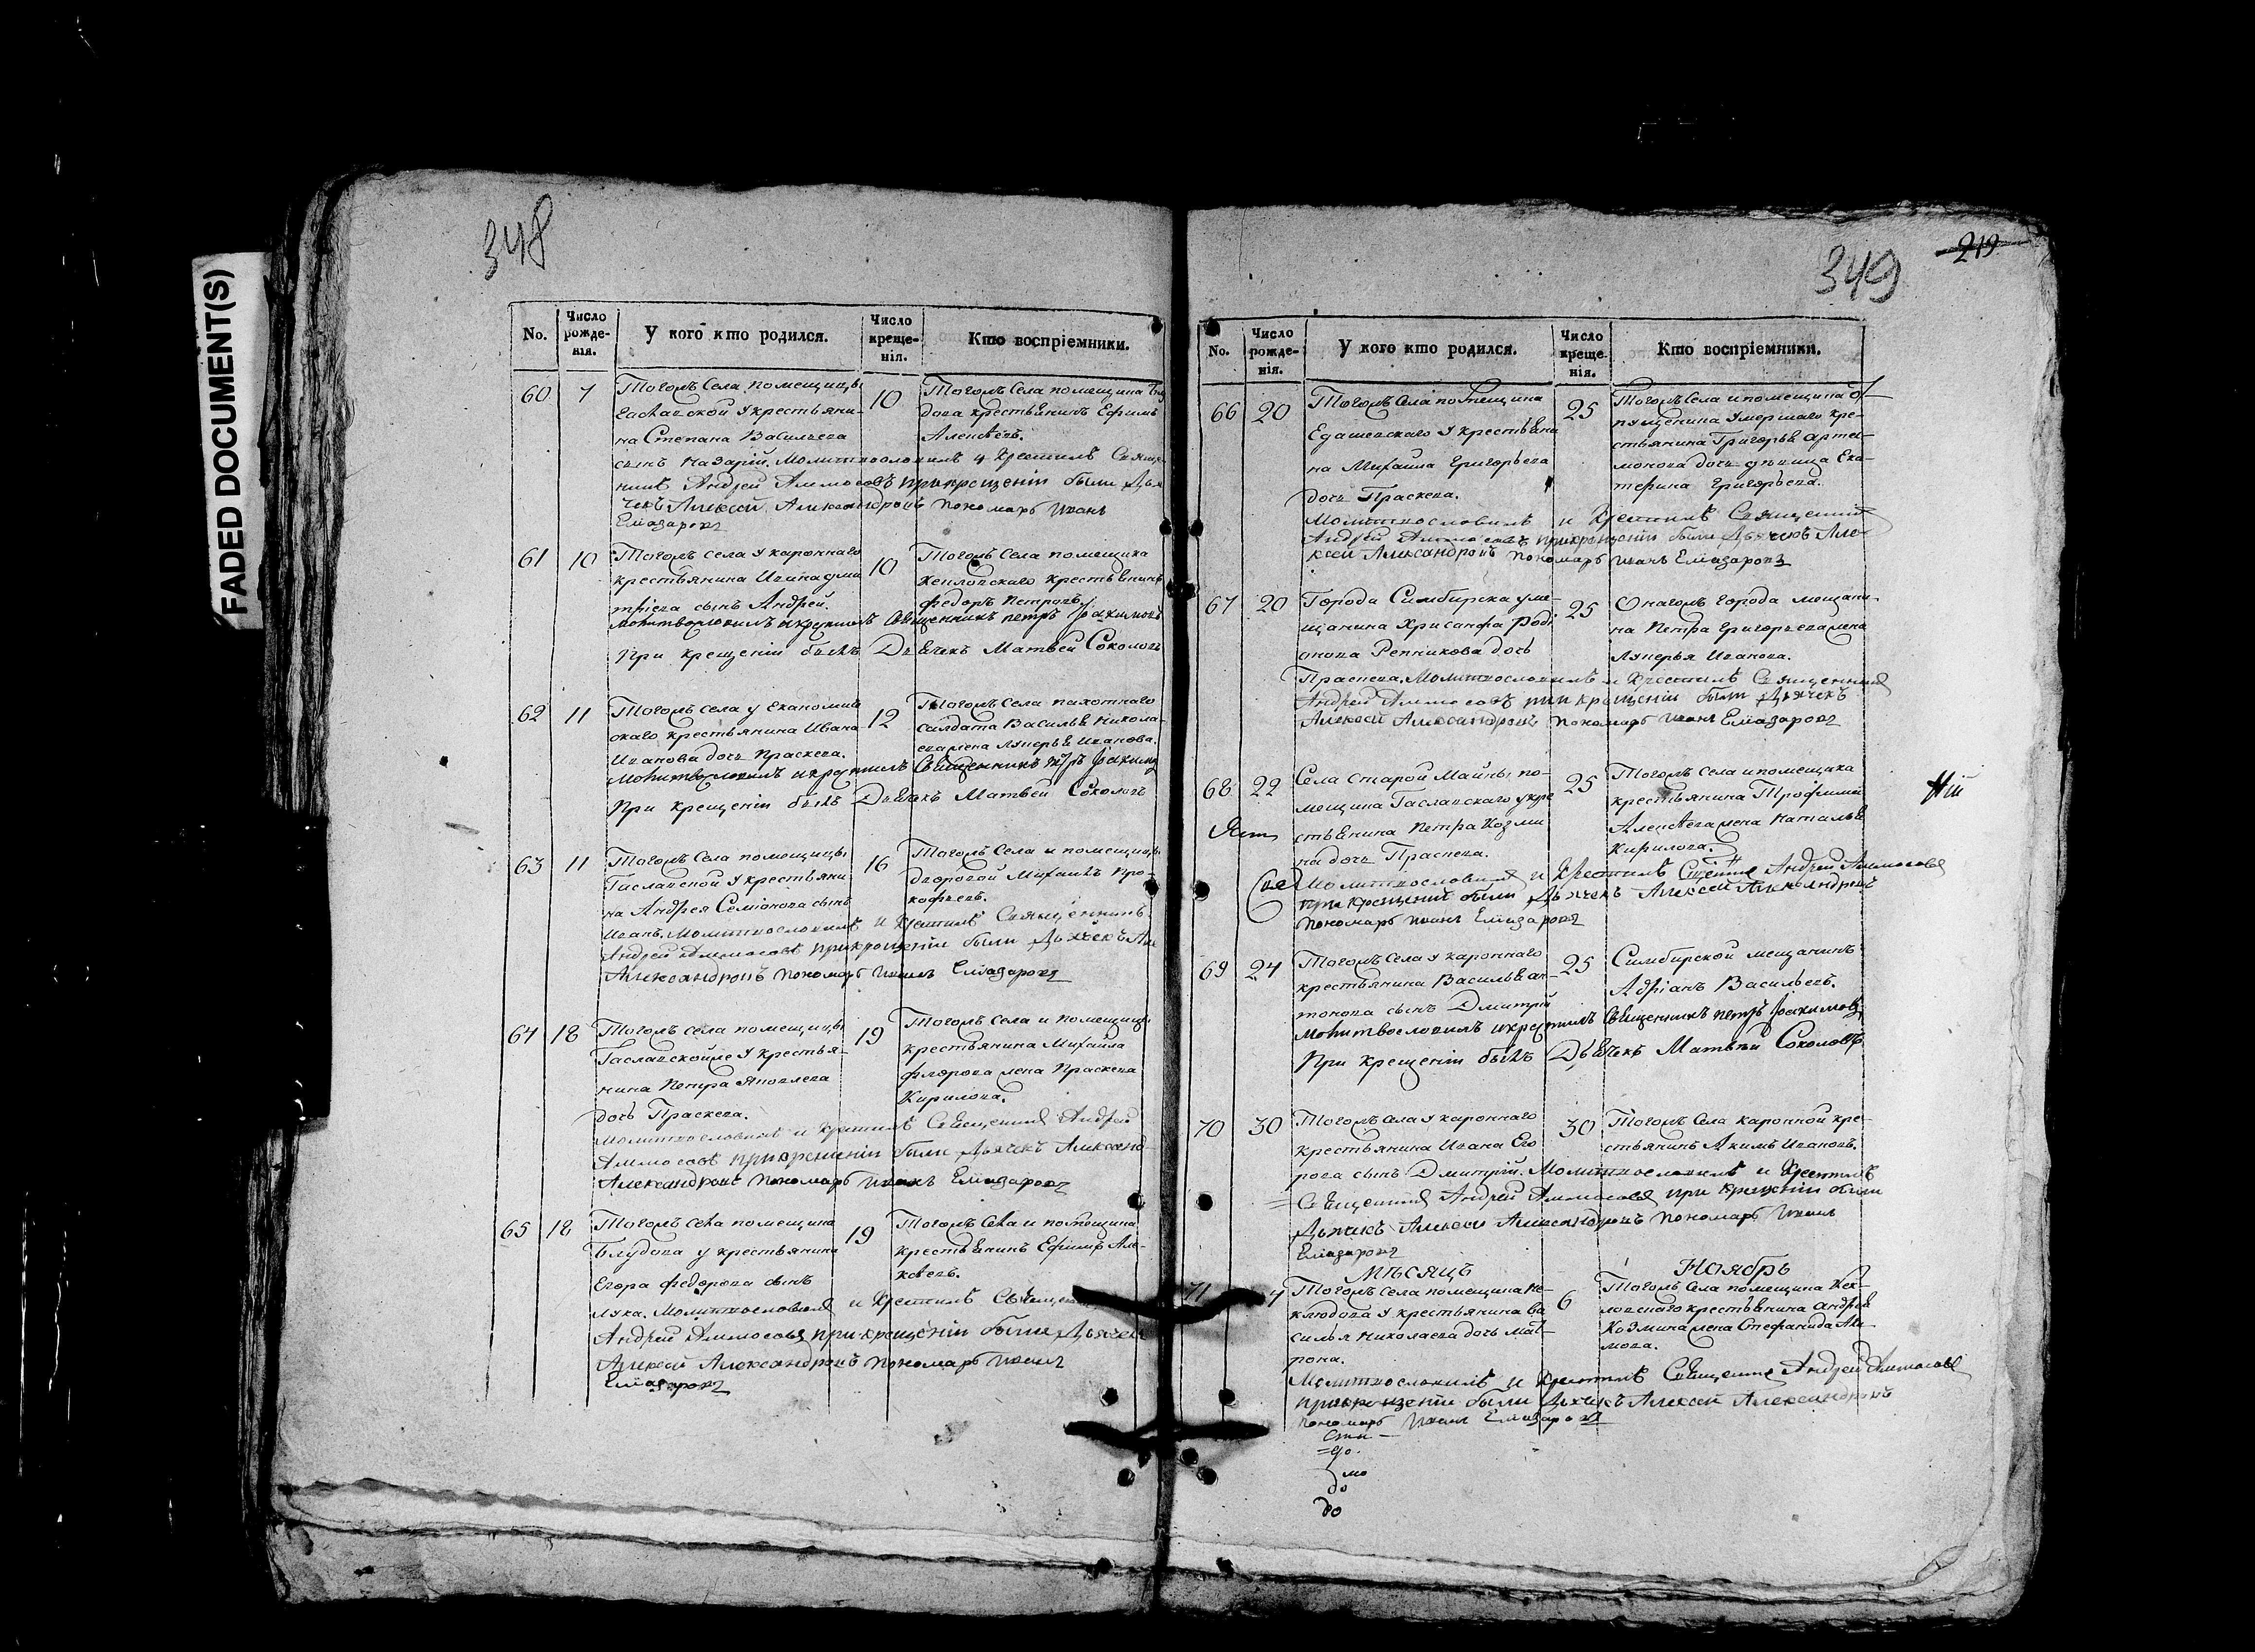 348
FADED DOCUMENT(S)
No.
Число рожде- нія.
У кого кто родился.
Число креще- нія.
Кто воспріемники.
60 7
Тогожъ Села помещицы
у крестьяни-
на Степана Васильева
сынъ Назарій. Молитвословилъ и Крестилъ Свяще
никъ Андрей Аммосовъ при крещеніи были Дья
чекъ Алексей Александровъ пономарь Иванъ
Елиазаровъ
10
Тогожъ Села помещика
крестьянинъ Ефимъ
Алексѣевъ.
61 10
Тогожъ села у каронного
крестьянина Ивана дми
тріева сынъ Андрей.
Молитвословилъ и крестилъ Священникъ петръ Іоакимовъ
При крещеніи былъ Дьячекъ Матвей Соколовъ
10
Тогожъ Села помещика
крестьянинъ
федоръ Петровъ
62 11
Тогожъ села у Економиче
скаго крестьянина Ивана
Иванова дочь Праскева.
Молитвословилъ и крестилъ Священникъ петръ Іоакимовъ
При крещеніи былъ Дьячекъ Матвей Соколовъ
12
Тогожъ Села пахотного
салдата Василья Никола-
ева жена Лукерья Иванова.
63 11
Тогожъ Села помещицы
Гаславской у крестьяни
на Андрея Семіонова сынъ
Иванъ. Молитвословилъ и Крестилъ Священникъ
Андрей Аммосовъ при крещеніи были Дьячекъ Але
Александровъ пономарь Иванъ Елиазаровъ
16
Тогожъ Села и помещицы
дворовой Михаилъ Про-
кофьевъ.
64 18
Тогожъ села помещицы
Гаславской же у крестья-
нина Петра Яковлева
дочь Праскева.
Молитвословилъ и Крестилъ Священникъ Андрей
Аммосовъ при крещеніи были Дьячекъ Александ-
Александровъ пономарь Иванъ Елиазаровъ
19
Тогожъ Села и помещицы
крестьянина Михайла
флорова жена Праскева
Кирилова.
65 18
Тогожъ Села помещика
Блудова у крестьянина
Егора федорова сынъ
Лука. Молитвословилъ и Крестилъ Священ
Андрей Аммосовъ при крещеніи были Дьячекъ
Алексей Александровъ пономарь Иванъ
Елиазаровъ
19
Тогожъ Села и помещика
крестьянинъ Ефимъ Але-
ксѣевъ.
349
219
No.
Число рожде- нія.
У кого кто родился.
Число креще- нія.
Кто воспріемники.
66 20
Тогожъ Села помещика
у крестьяни
на Михаила Григорьева
дочь Праскева.
Молитвословилъ и Крестилъ Священникъ
Андрей Аммосовъ при крещеніи были Дьячекъ Але-
ксей Александровъ пономарь Иванъ Елиазаровъ
25
Тогожъ Села и помещика
умершаго кре-
стьянина Григорья Арта-
монова дочь девица Ека-
терина Григорьева.
67 20
Города Симбирска у ме-
щанина Хрисанфа Роди
онова Репникова дочь
Праскева. Молитвословилъ и Крестилъ Священникъ
Андрей Аммосовъ при крещеніи были Дьячекъ
Алексей Александровъ пономарь Иванъ Елиазаровъ
25
Онагожъ города мещани-
на Петра Григорьева жена
Лукерья Иванова.
68 22
Села Старой Майны по-
мещика Гаславскаго у кре
стьянина Петра Козми
на дочь Праскева.
Молитвословилъ и Крестилъ Священникъ Андрей Аммосовъ
при крещеніи были Дьячекъ Алексей Александровъ
пономарь Иванъ Елиазаровъ
25
Тогожъ Села и помещика
крестьянина Трофима
Алексѣева жена Наталья
Кирилова.
69 24
Тогожъ Села у каронного
крестьянина Василья ан-
тонова сынъ Дмитрій
Молитвословилъ и крестилъ Священникъ петръ Іоакимовъ
При крещеніи былъ Дьячекъ Матвей Соколовъ
25
Симбирской мещанинъ
Адріанъ Васильевъ.
70 30
Тогожъ села у каронного
крестьянина Ивана Его
рова сынъ Дмитрій. Молитвословилъ и Крестилъ
Священникъ Андрей Аммосовъ при крещеніи были
Дьячекъ Алексей Александровъ пономарь Иванъ
Елиазаровъ
30
Тогожъ Села каронной кре-
стьянинъ Акимъ Ивановъ.
Мѣсяцъ Ноябрь
71 4
Тогожъ Села помещика Не-
клюдова у крестьянина Ва
силья Николаева дочь Мат-
рона.
Молитвословилъ и Крестилъ Священникъ Андрей Аммосовъ
при крещеніи были Дьячекъ Алексей Александровъ
пономарь Иванъ Елиазаровъ
6
Тогожъ Села помещика
крестьянина Андрея
Козмина жена Стефанида Аки-
мова.
мо
до
до